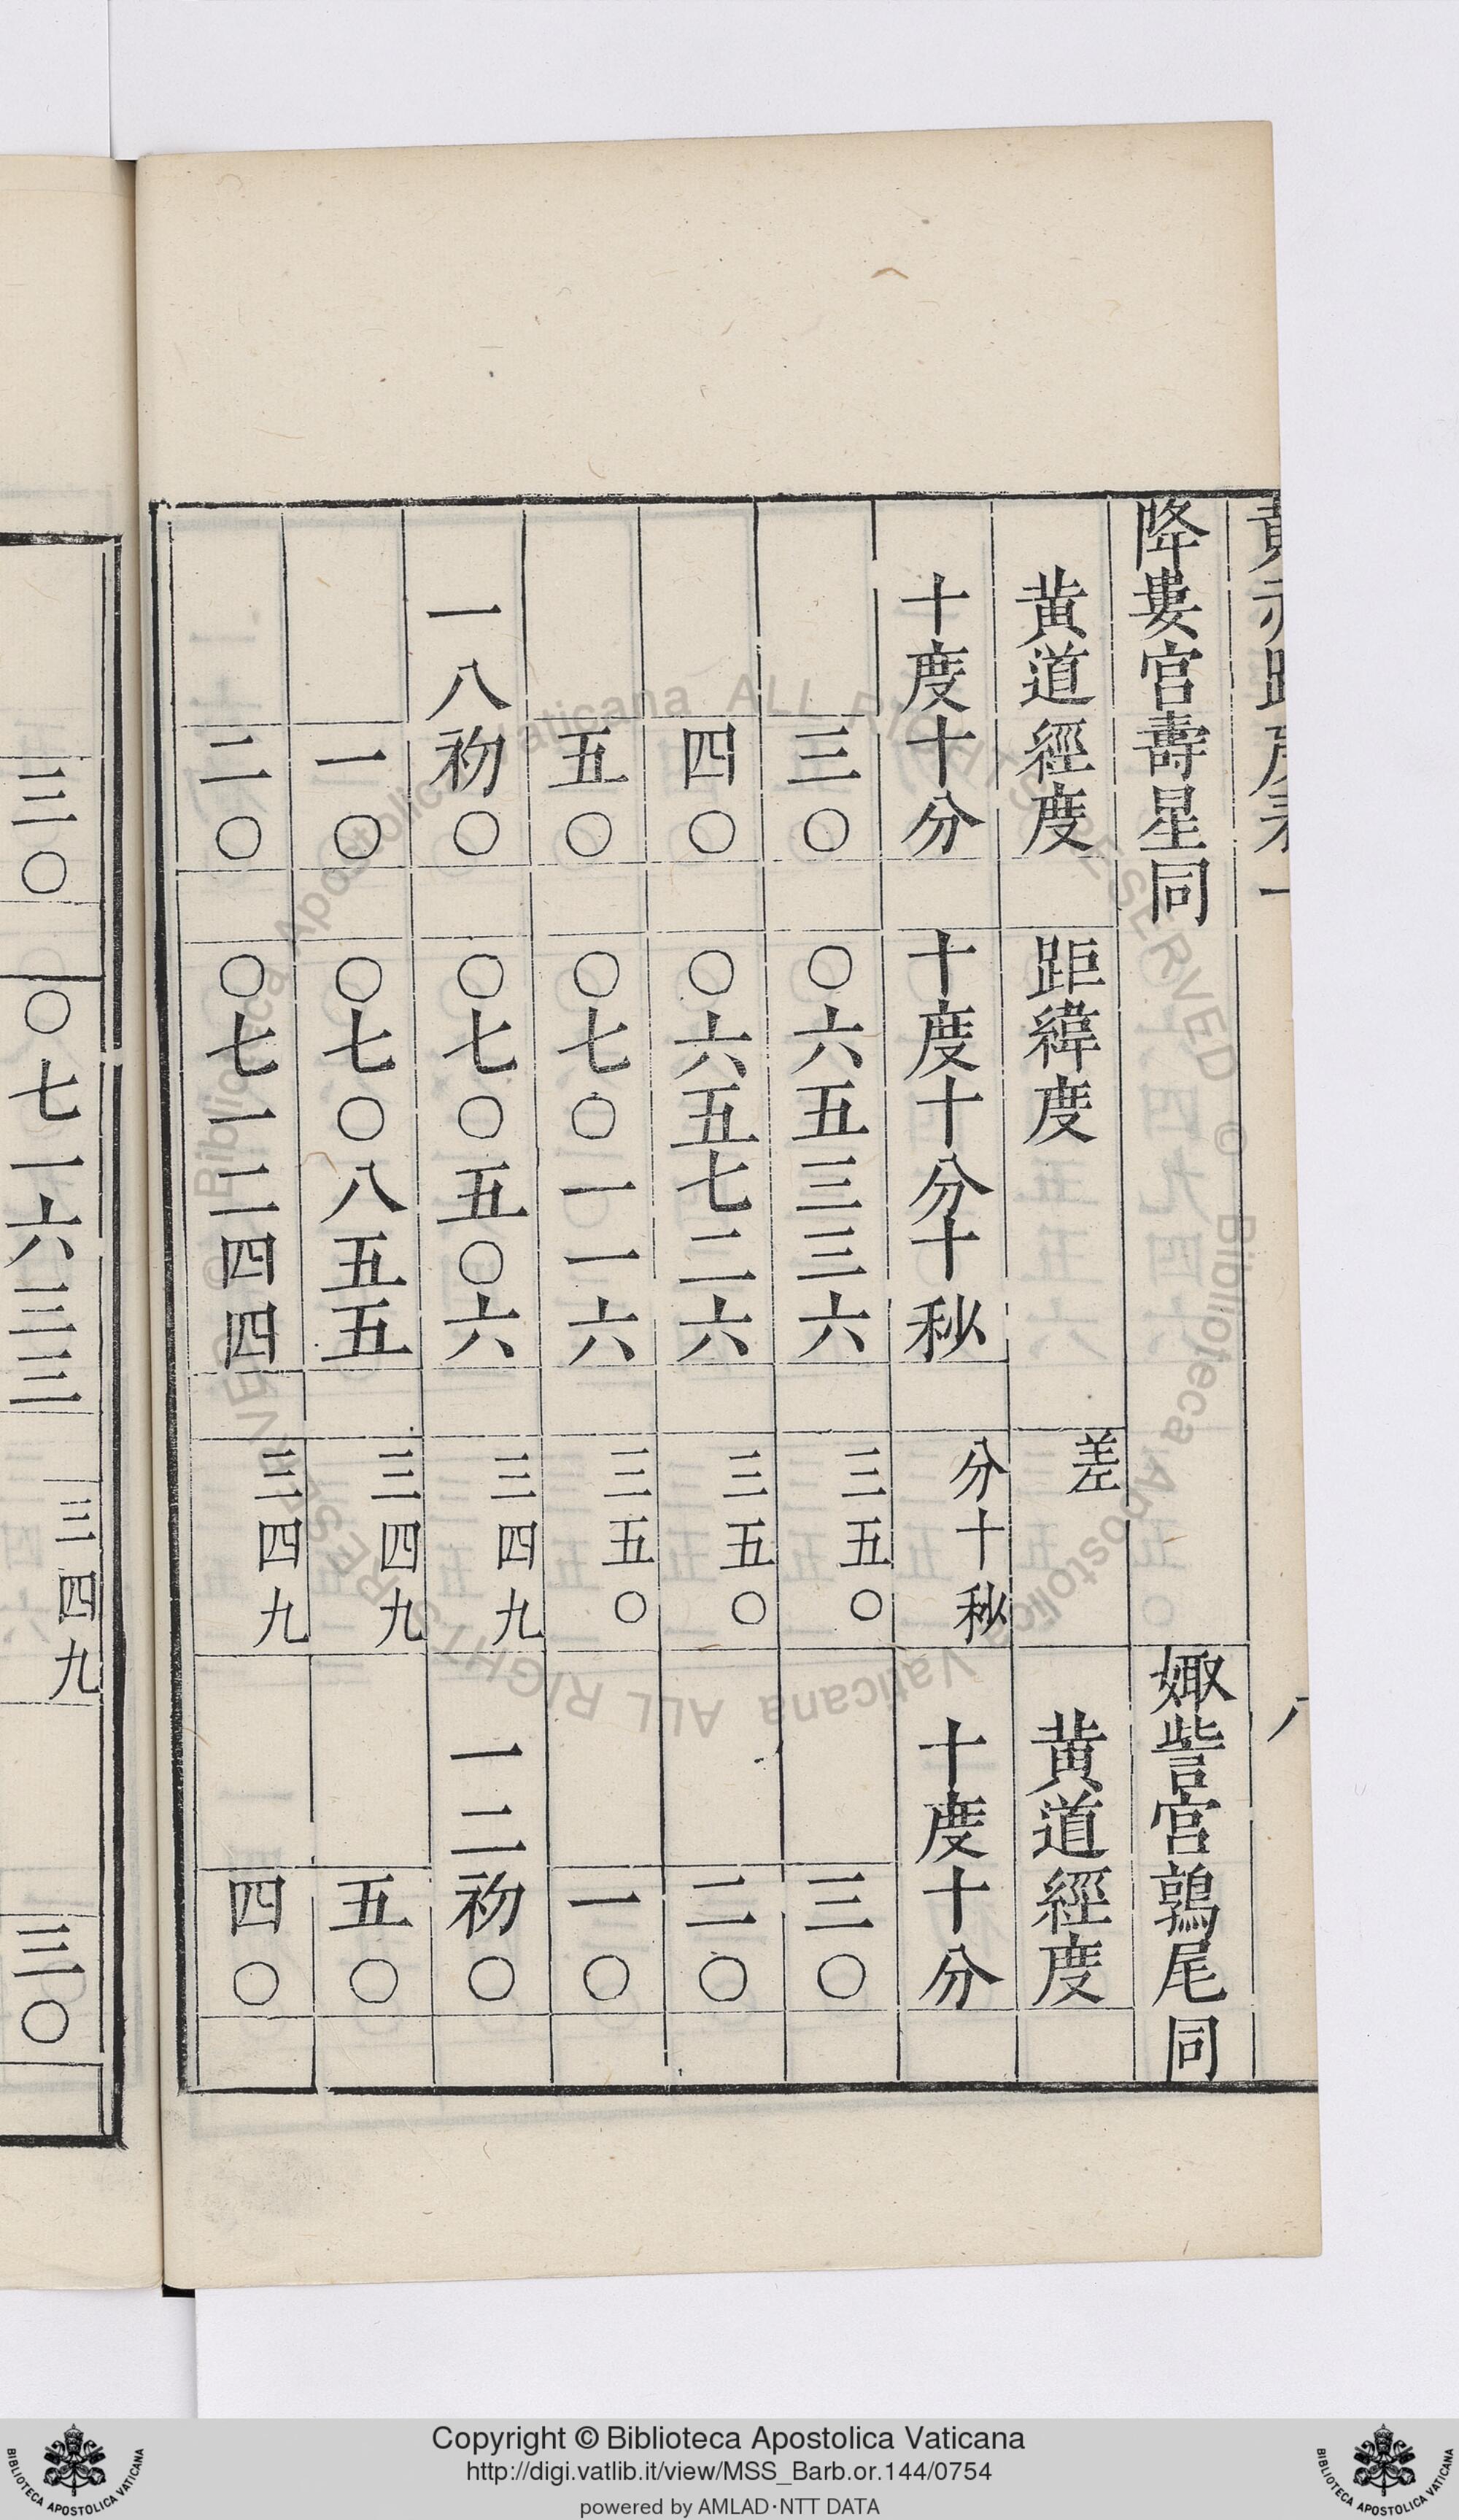 降婁宮壽星同 娵訾宮鶉尾同
黃道經度 距緯度 差 黃道經度
十度十分 十度十分十秒 分十秒 十度十分
三〇 〇六五三三六 三五〇 三〇
四〇 〇六五七二六 三五〇 二〇
五〇 〇七〇一一六 三五〇 一〇
一八初〇 〇七〇五〇六 三四九 一二初〇
一〇 〇七〇八五五 三四九 五〇
二〇 〇七一二四四 三四九 四〇
三〇 〇七一六三三 三四九 三〇
© Biblioteca Apostolica Vaticana ALL RIGHTS RESERVED
© Biblioteca Apostolica Vaticana ALL RIGHTS RESERVED
Copyright © Biblioteca Apostolica Vaticana
http://digi.vatlib.it/view/MSS_Barb.or.144/0754
powered by AMLAD·NTT DATA
BIBLIOTECA APOSTOLICA VATICANA
BIBLIOTECA APOSTOLICA VATICANA